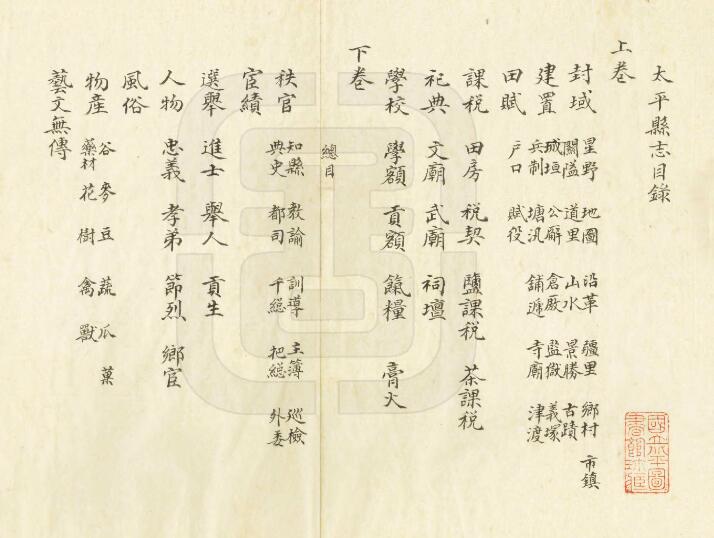 太平縣志目錄
上卷
封域 星野 地圖 沿革 疆里 鄉村 市鎮
關隘 道里 山水 景勝 古蹟
建置 城垣 公廨 倉廒 監獄 義塚
兵制 塘汛 鋪遞 寺廟 津渡
田賦 戶口 賦役
課税 田房 税契 鹽課税 茶課税
祀典 文廟 武廟 祠壇
學校 學額 貢額 餼糧 膏火
下卷
總目
秩官 知縣 教諭 訓導 主簿 巡檢
典史 都司 千總 把總 外委
宦績
選舉 進士 舉人 貢生
人物 忠義 孝弟 節烈 鄉宦
風俗
物産 谷 麥 豆 蔬 瓜 菓
藥材 花 樹 禽 獸
藝文無傳